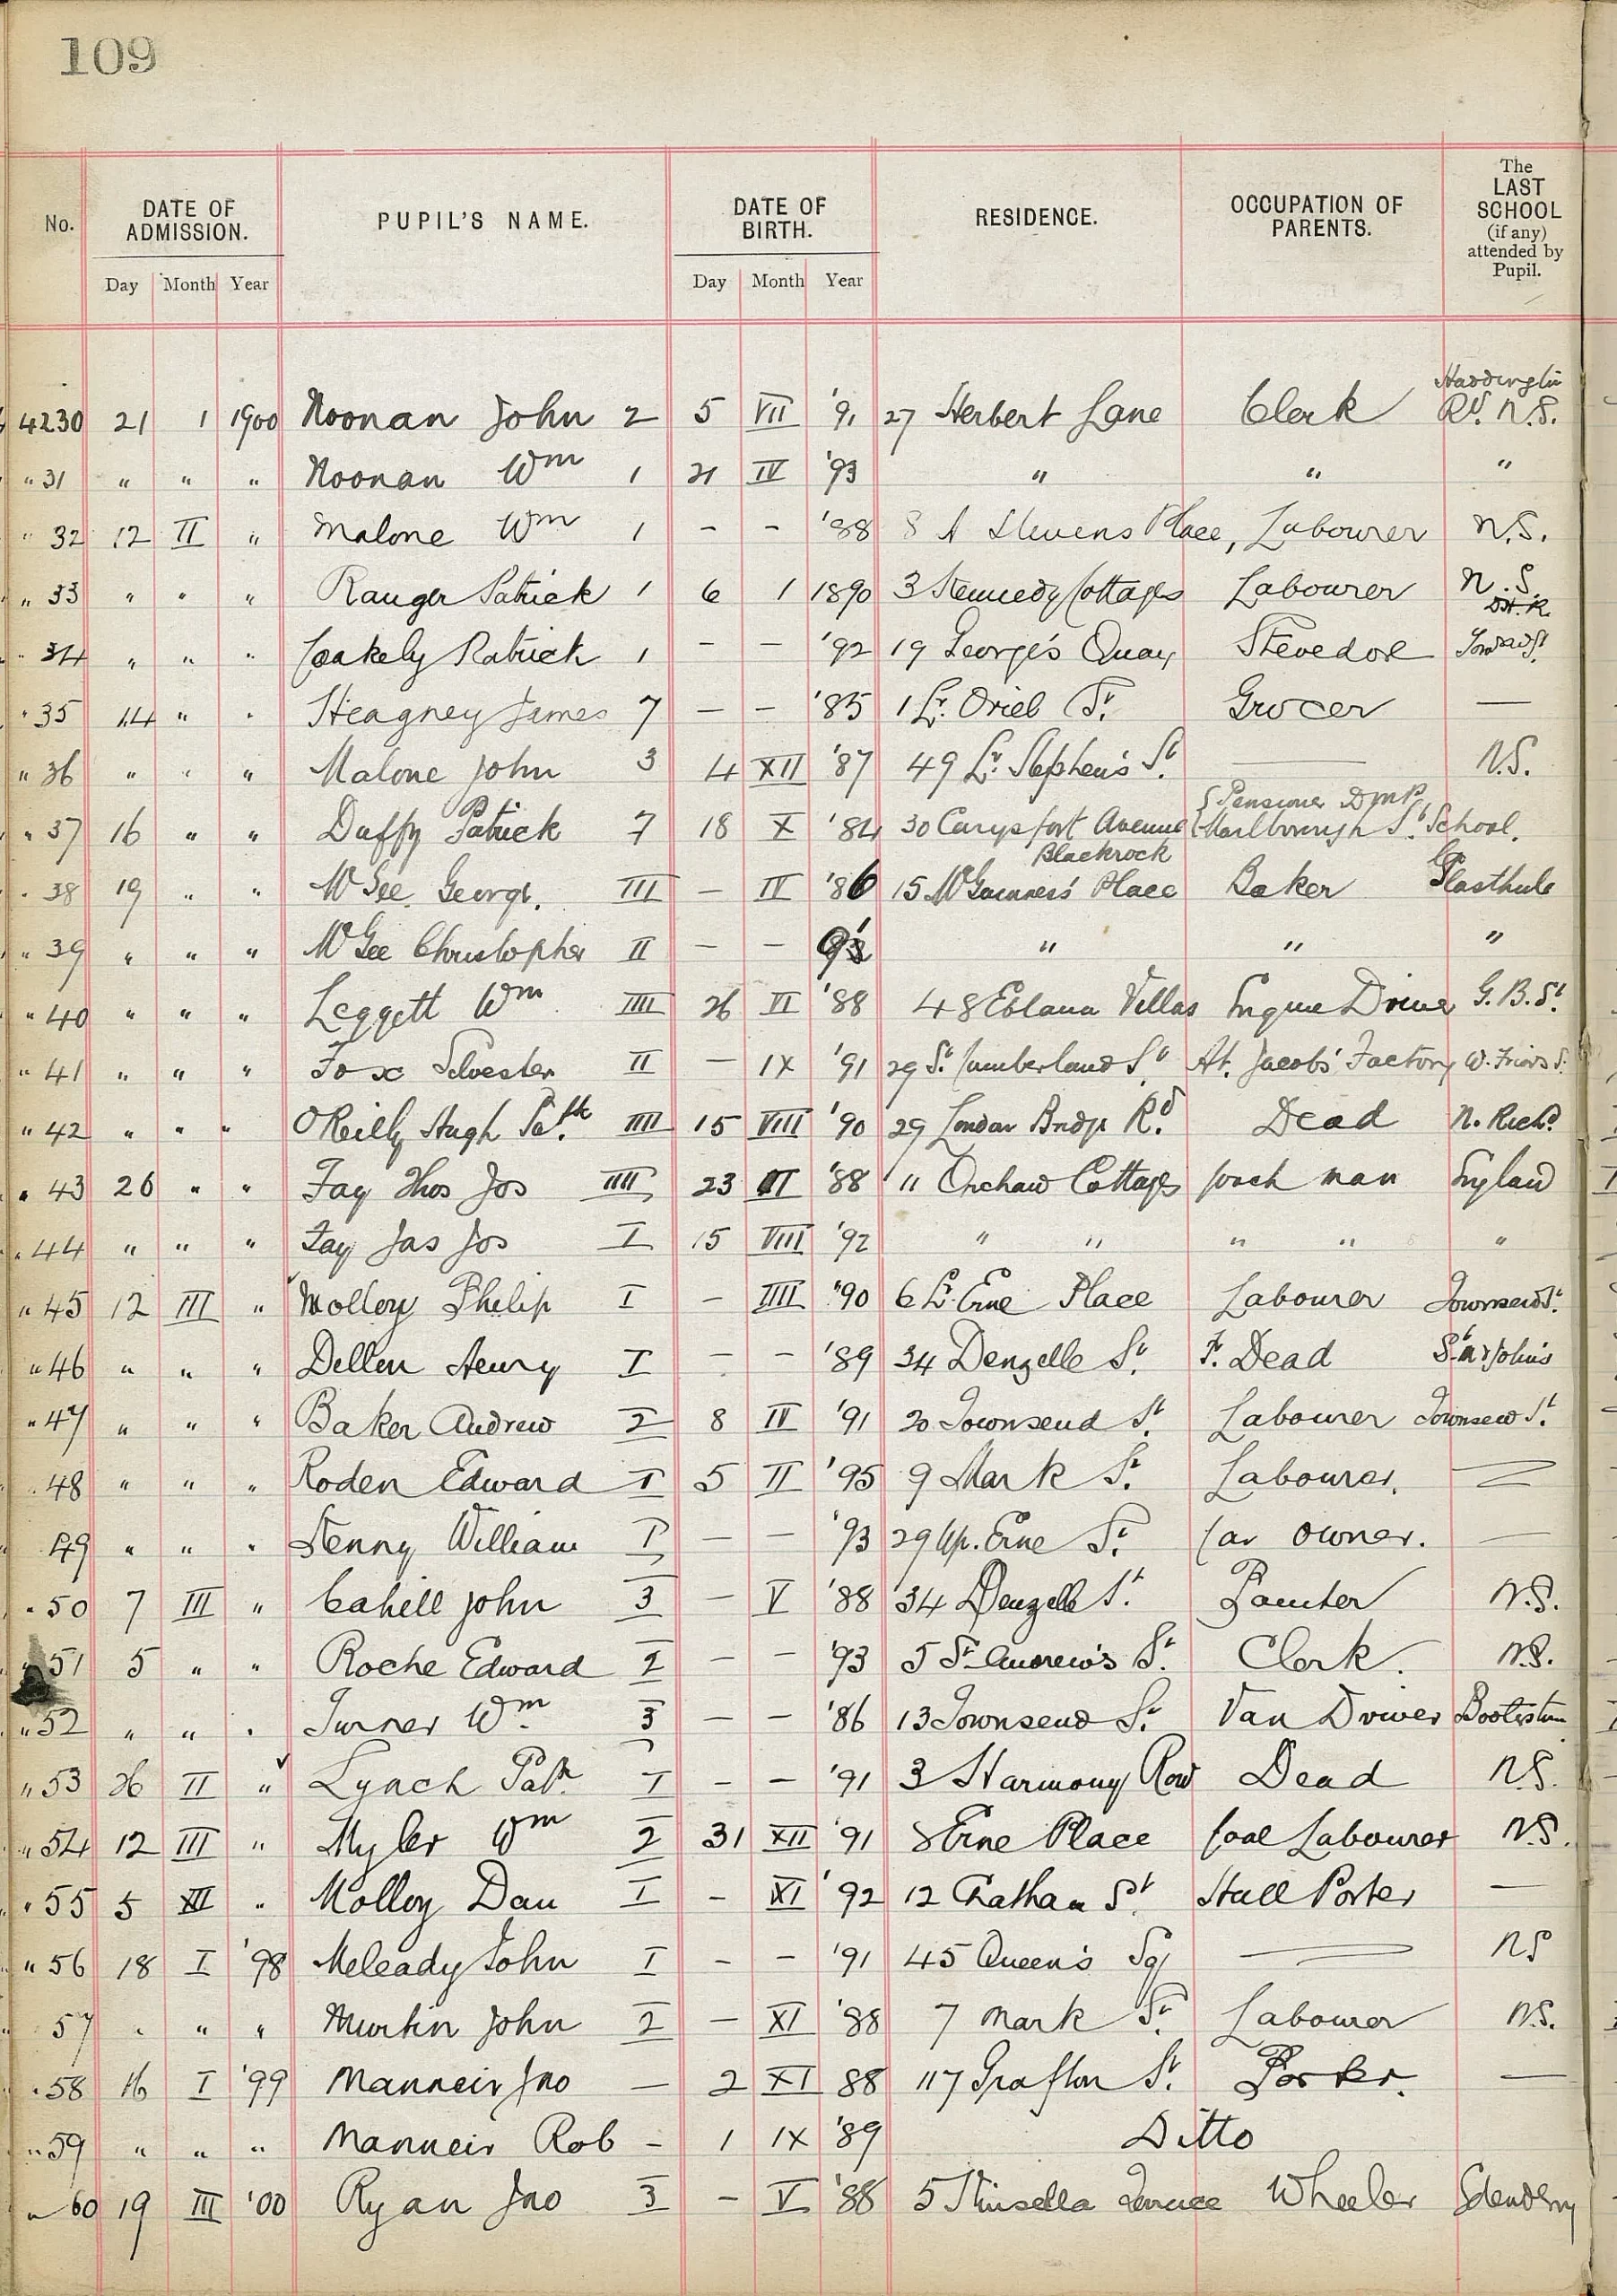 109
No. DATE OF ADMISSION. PUPIL'S NAME. DATE OF BIRTH. RESIDENCE. OCCUPATION OF PARENTS. The LAST SCHOOL (if any) attended by Pupil.
Day Month Year Day Month Year
4230 21 1 1900 Noonan John 2 5 VII '91 27 Herbert Lane Clerk Haddington Rd. N.S.
" 31 " " " Noonan Wm 1 21 IV '93 " " "
" 32 12 II " Malone Wm 1 - - '88 8 A Stevens Place, Labourer N.S.
" 33 " " " Ranger Patrick 1 6 1 1890 3 Kennedy Cottages Labourer N.S.
" 34 " " " Coakely Patrick 1 - - '92 19 George's Quay Stevedore
" 35 14 " " Heagney James 7 - - '85 1 Lr. Oriel St. Grocer —
" 36 " " " Malone John 3 4 XII '87 49 Lr. Stephen's St. — N.S.
" 37 16 " " Duffy Patrick 7 18 X '84 30 Carysfort Avenue Blackrock Pensioner DMP Marlborough St. School.
" 38 19 " " McGee George. III - IV '86 15 McGuinness' Place Baker Glasthule
" 39 " " " McGee Christopher II - - " " "
" 40 " " " Leggett Wm IIII 26 VI '88 48 Eblana Villas Engine Driver G.B.St.
" 41 " " " Fox Silvester II - IX '91 29 St. Cumberland St. At. Jacobs' Factory W. Friars S.
" 42 " " " O'Reilly Hugh Patk. IIII 15 VIII '90 29 London Bridge Rd. Dead N. Richd.
" 43 26 " " Fay Thos Jos IIII 23 '88 11 Cottages Coach man England
" 44 " " " Fay Jas Jos I 15 VIII '92 " " " " "
" 45 12 III " Molloy Philip I - IIII '90 6 Lr. Erne Place Labourer Townsend St.
" 46 " " " Dillon Henry I - - '89 34 Denzelle St. F. Dead
" 47 " " " Baker Andrew 2 8 IV '91 20 Townsend St. Labourer Townsend St.
" 48 " " " Roden Edward I 5 II '95 9 Mark St. Labourer. —
49 " " " Kenny William I - - '93 29 Up. Erne St. Car owner. —
" 50 7 III " Cahill John 3 - V '88 34 Denzelle St. Painter N.S.
" 51 5 " " Roche Edward I - - '93 5 St. Andrew's St. Clerk. N.S.
" 52 " " " Turner Wm. 3 - - '86 13 Townsend St. Van Driver Booterstown
" 53 26 II " Lynch Patk. I - - '91 3 Harmony Row Dead N.S.
" 54 12 III " Myler Wm 2 31 XII '91 8 Erne Place Coal Labourer N.S.
" 55 5 XII " Molloy Dan I - XI '92 12 Chatham St. Hall Porter —
" 56 18 I '98 Meleady John I - - '91 45 Queen's Sq — NS
57 " " " Murtin John 2 - XI '88 7 Mark St. Labourer N.S.
" 58 16 I '99 Manneir Jno — 2 XI 88 117 Grafton St. Porter. —
" 59 " " " Manneir Rob - 1 IX '89 Ditto
" 60 19 III '00 Ryan Jno 3 - V '88 5 Kinsella Terrace Wheeler Edenderry